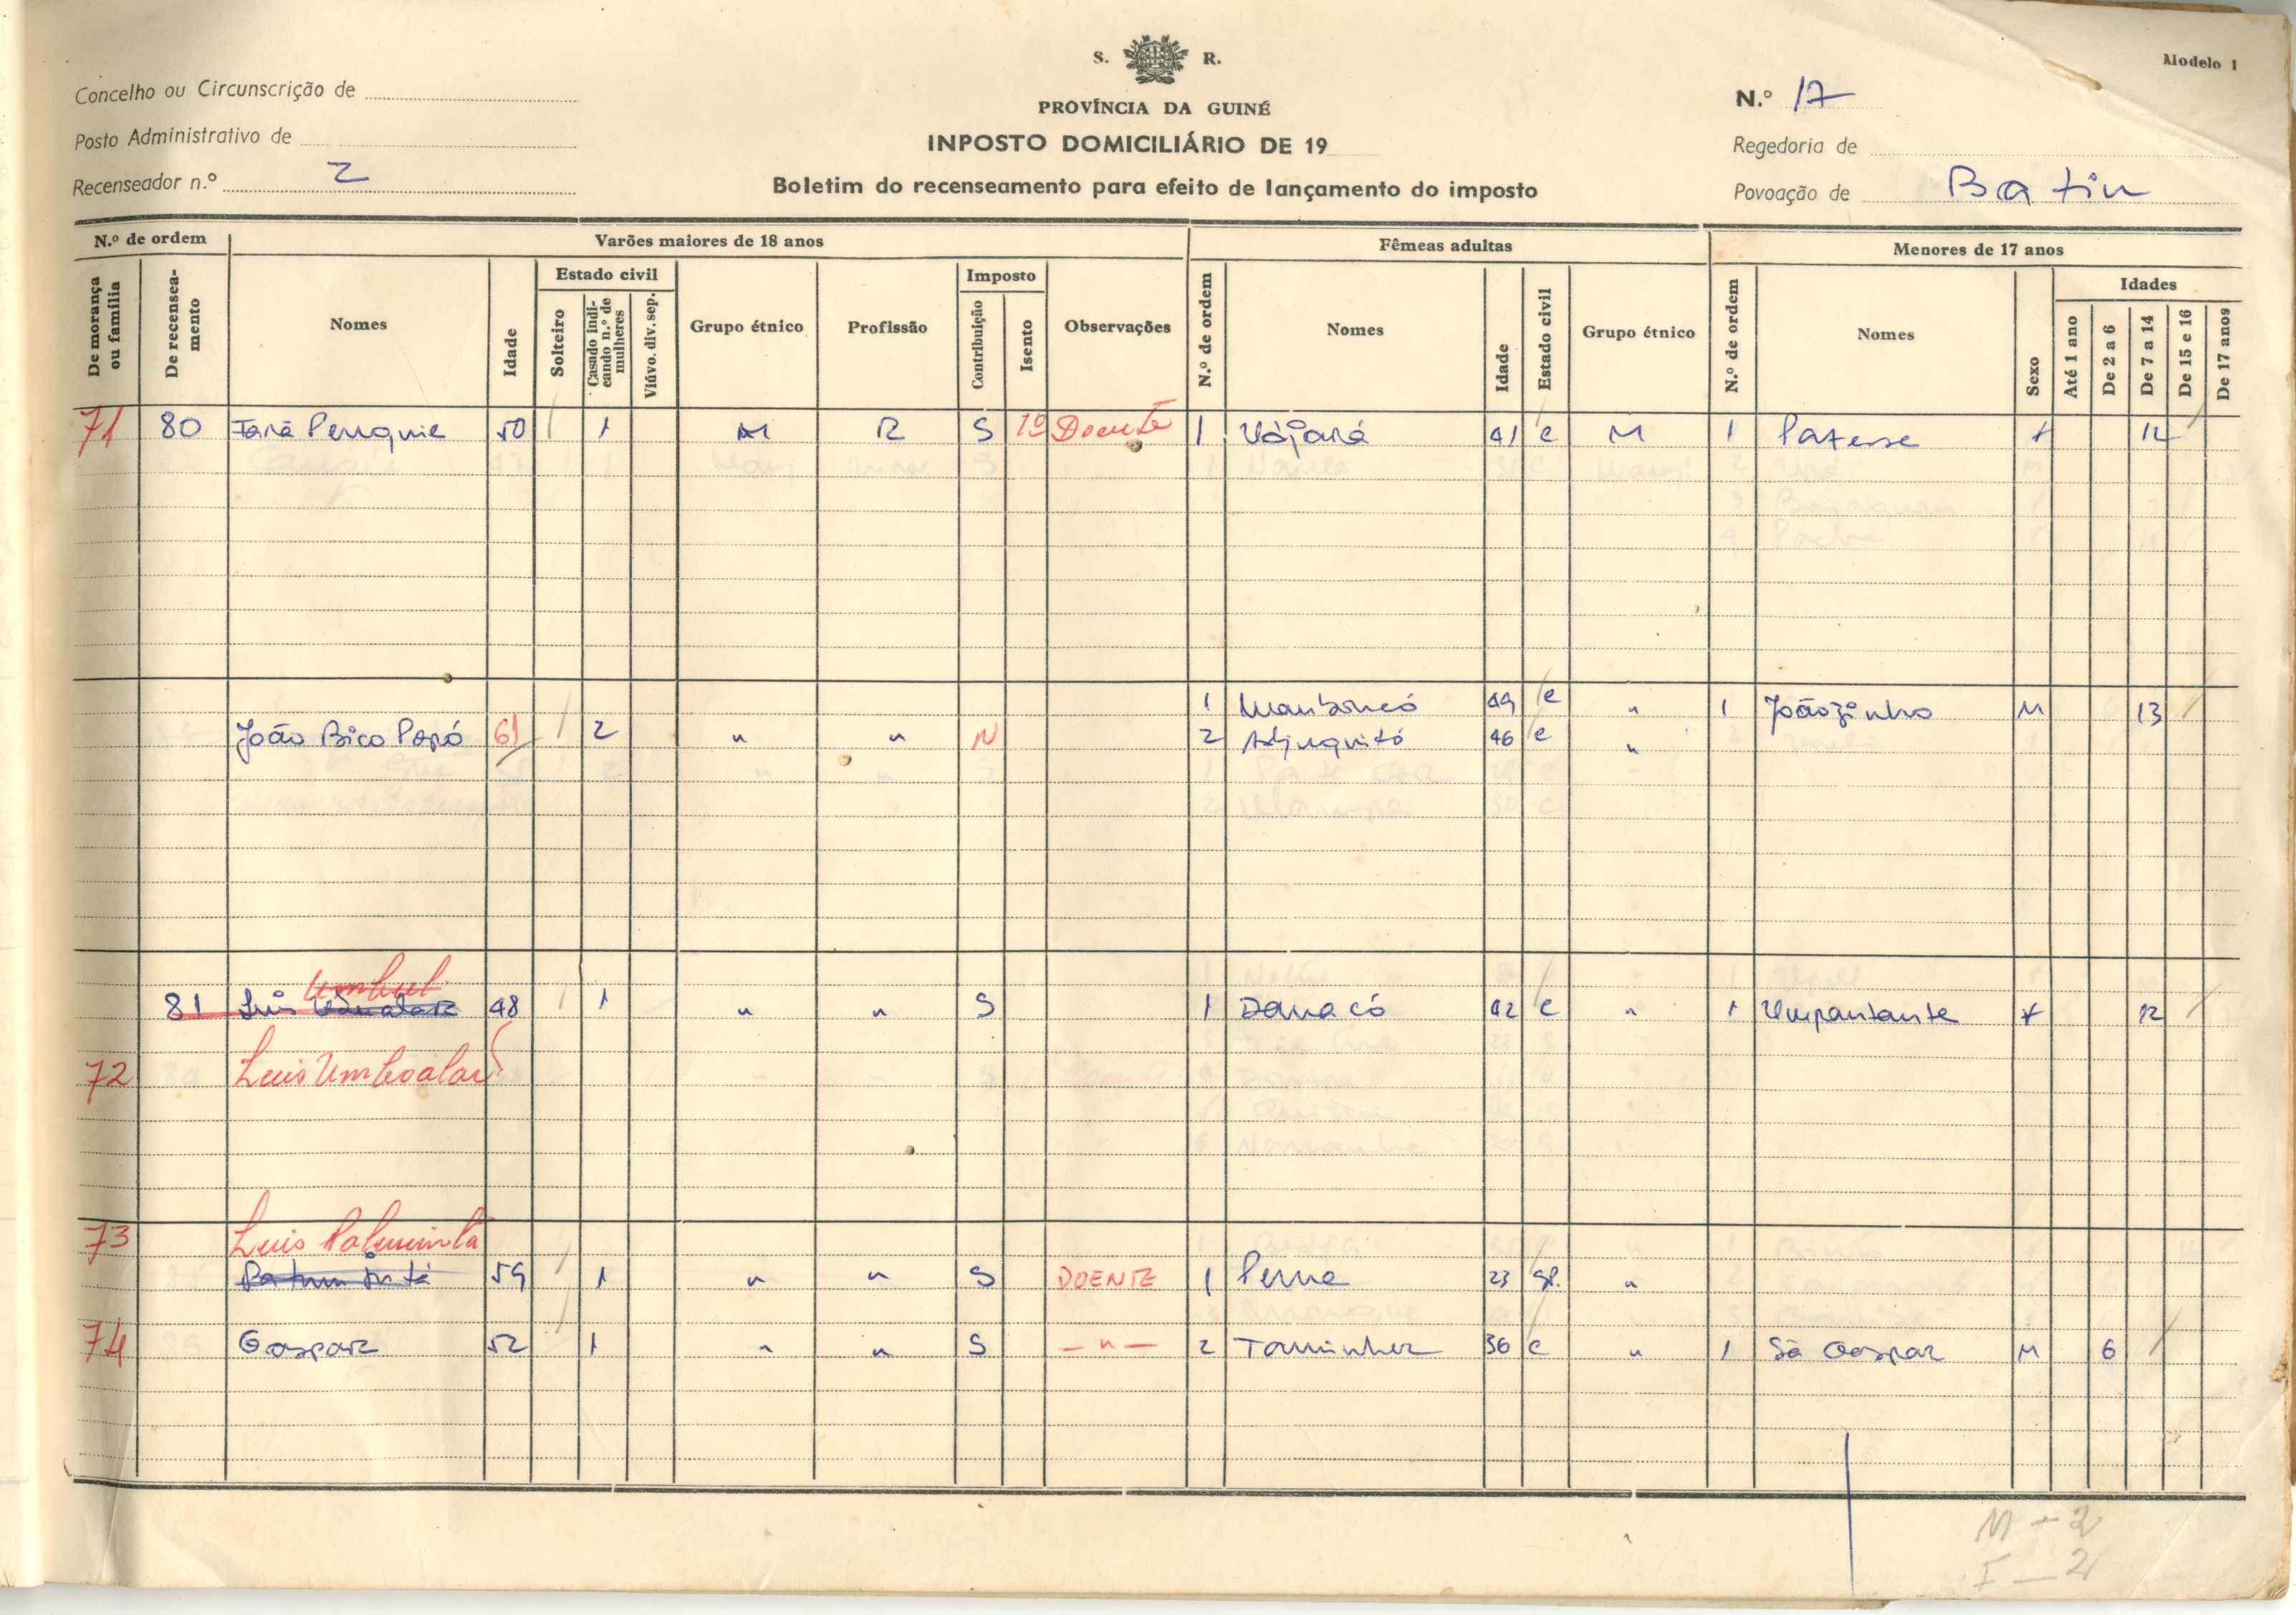 S. R.
Modelo 1
Concelho ou Circunscrição de
PROVÍNCIA DA GUINÉ
N.º 17
Posto Administrativo de
INPOSTO DOMICILIÁRIO DE 19
Regedoria de
Recenseador n.º 2
Boletim do recenseamento para efeito de lançamento do imposto
Povoação de Batin
N.º de ordem Varões maiores de 18 anos Fêmeas adultas Menores de 17 anos
De morança ou família
De recenseamento
Nomes
Idade
Estado civil
Solteiro
Casado indicando n.º de mulheres
Viúvo. div. sep.
Grupo étnico
Profissão
Imposto
Contribuição
Isento
Observações
N.º de ordem
Nomes
Idade
Estado civil
Grupo étnico
N.º de ordem
Nomes
Sexo
Idades
Até 1 ano
De 2 a 6
De 7 a 14
De 15 e 16
De 17 anos
71 80 50 1 M R S Doente 1 41 c M 1
1 44 c " 1 Joãozinho M 13
João Bico Papó 61 2 " " N 2 Adjuquitó 46 c "
81 Luis 48 1 " " S 1 Danacó 42 c " 1 Umpantante 12
72 Luis Umboalar
73 Luis
59 1 " " S DOENTE 1 Perna 23 "
74 Gaspar 52 1 " " S — " — 2 36 c " 1 Sá Gaspar M 6
M — 2
I — 2